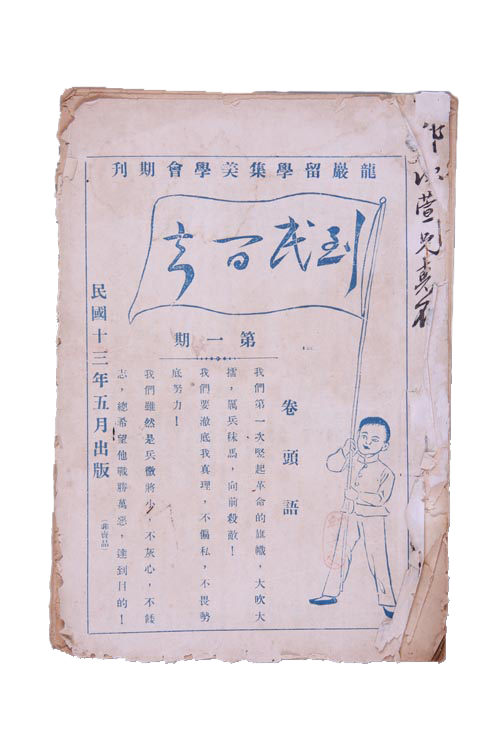 龍巖留學集美學會期刊
到民間去
第一期
卷頭語
我們第一次竪起革命的旗幟，大吹大
擂，厲兵秣馬，向前殺敵！
我們要澈底找真理，不偏私，不畏勢
底努力！
我們雖然是兵微將少，不灰心，不餒
志，總希望他戰勝萬惡，達到目的！
民國十三年五月出版
（非賣品）
萱兄惠存